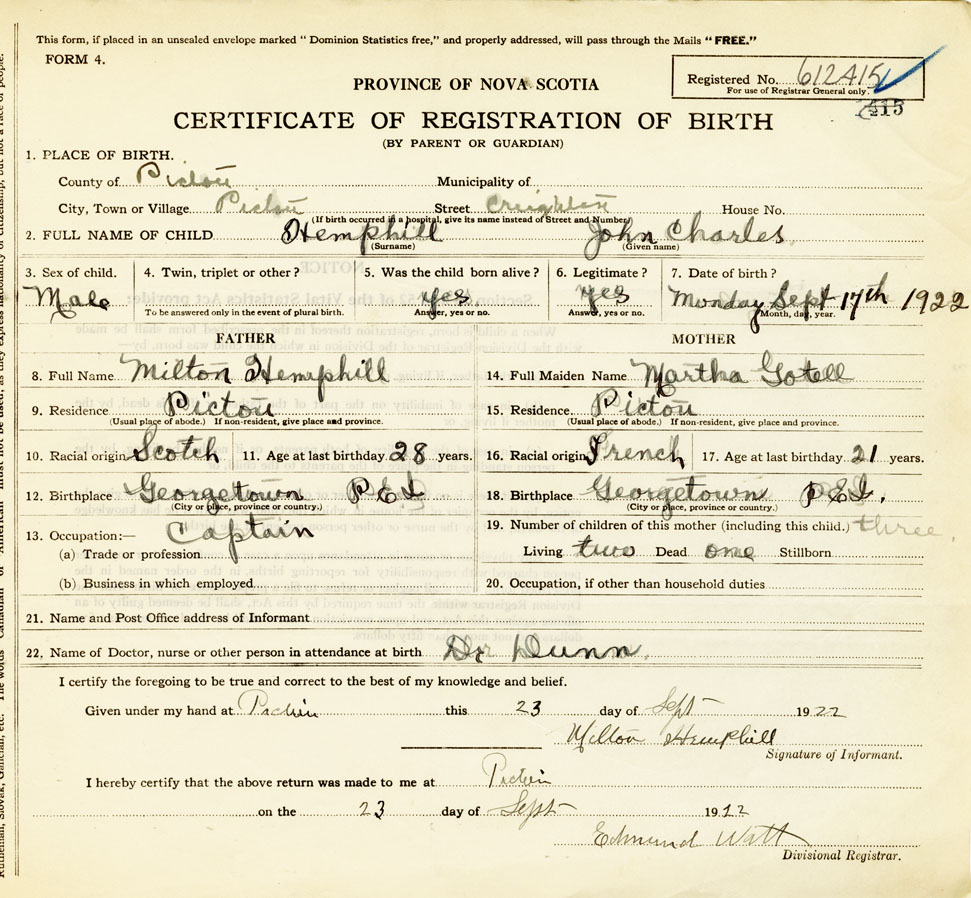 This form, if placed in an unsealed envelope marked "Dominion Statistics free," and properly addressed, will pass through the Mails "FREE."
FORM 4.
Registered No. 612415
For use of Registrar General only.
415
PROVINCE OF NOVA SCOTIA
CERTIFICATE OF REGISTRATION OF BIRTH
(BY PARENT OR GUARDIAN)
1. PLACE OF BIRTH.
County of Pictou Municipality of
City, Town or Village Pictou Street Creighton House No.
(If birth occurred in a hospital, give its name instead of Street and Number)
2. FULL NAME OF CHILD Hemphill John Charles
(Surname) (Given name)
3. Sex of child. 4. Twin, triplet or other? 5. Was the child born alive? 6. Legitimate? 7. Date of birth?
Male Yes Yes Monday Sept 17th 1922
To be answered only in the event of plural birth. Answer, yes or no. Answer, yes or no. Month, day, year.
FATHER MOTHER
8. Full Name Milton Hemphill 14. Full Maiden Name Martha Gotell
9. Residence Pictou 15. Residence Pictou
(Usual place of abode.) If non-resident, give place and province. (Usual place of abode.) If non-resident, give place and province.
10. Racial origin Scotch 11. Age at last birthday 28 years. 16. Racial origin French 17. Age at last birthday 21 years.
12. Birthplace Georgetown P E I 18. Birthplace Georgetown P E I.
(City or place, province or country.) (City or place, province or country.)
13. Occupation:— Captain 19. Number of children of this mother (including this child.) three
(a) Trade or profession Living two Dead one Stillborn
(b) Business in which employed 20. Occupation, if other than household duties
21. Name and Post Office address of Informant
22. Name of Doctor, nurse or other person in attendance at birth Dr Dunn
I certify the foregoing to be true and correct to the best of my knowledge and belief.
Given under my hand at Pictou this 23 day of Sept 1922
Milton Hemphill
Signature of Informant.
I hereby certify that the above return was made to me at Pictou
on the 23 day of Sept 1922
Edmund Watt
Divisional Registrar.